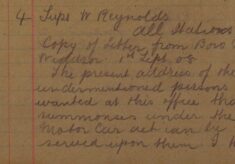 4 Supt W Reynolds
All Stations
Copy of Letter from Boro
Windsor 1st Sept. 08
The present address of the
undermentioned persons
wanted at this office tho
summonses under the
Motor Car act can by
served upon them